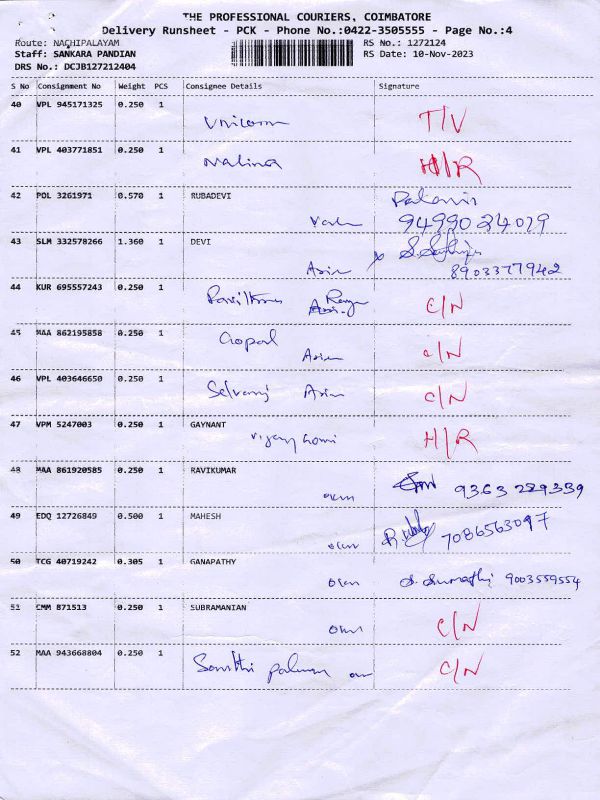 THE PROFESSIONAL COURIERS, COIMBATORE
Delivery Runsheet - PCK - Phone No.:0422-3505555 - Page No.:4
Route: NACHIPALAYAM
RS No.: 1272124
Staff: SANKARA PANDIAN
RS Date: 10-Nov-2023
DRS No.: DCJB127212404
S No Consignment No Weight PCS Consignee Details Signature
40 VPL 945171325 0.250 1
Unicorn T/V
41 VPL 403771851 0.250 1
Nalina H/R
42 POL 3261971 0.570 1 RUBADEVI
9499024079
43 SLM 332578266 1.360 1 DEVI
Asian 8903377942
44 KUR 695557243 0.250 1
C/N
45 MAA 862195858 0.250 1
Gopal Asian C/N
46 VPL 403646650 0.250 1
Selvaraj Asian C/N
47 VPM 5247003 0.250 1 GAYNANT
H/R
48 MAA 861920585 0.250 1 RAVIKUMAR
own 9363229339
49 EDQ 12726849 0.500 1 MAHESH
own 7086563097
50 TCG 40719242 0.305 1 GANAPATHY
own S. Sumathi 9003559554
51 CMM 871513 0.250 1 SUBRAMANIAN
own C/N
52 MAA 943668804 0.250 1
C/N